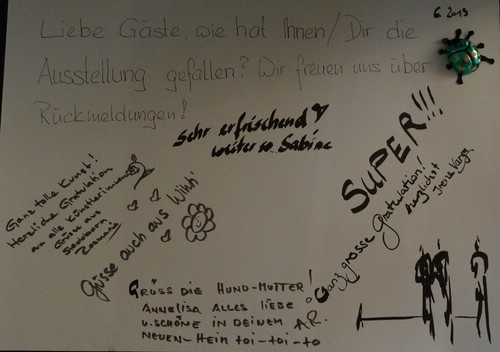 6.2013
Liebe Gäste, wie hat Ihnen/Dir die
Ausstellung gefallen? Wir freuen uns über
Rückmeldungen!
Sehr erfrischend
weiter so. Sabine
SUPER!!!
Ganz grosse Gratulation!
herzlichst
Irene
Ganz tolle Kunst!
Herzliche Gratulation
an alle Künstlerinnen
Grüsse aus
Grüsse auch aus
GRÜSS DIE HUND-MUTTER!
ANNELISA ALLES LIEBE
U. SCHÖNE IN DEINEM AR.
NEUEN-HEIM toi-toi-to